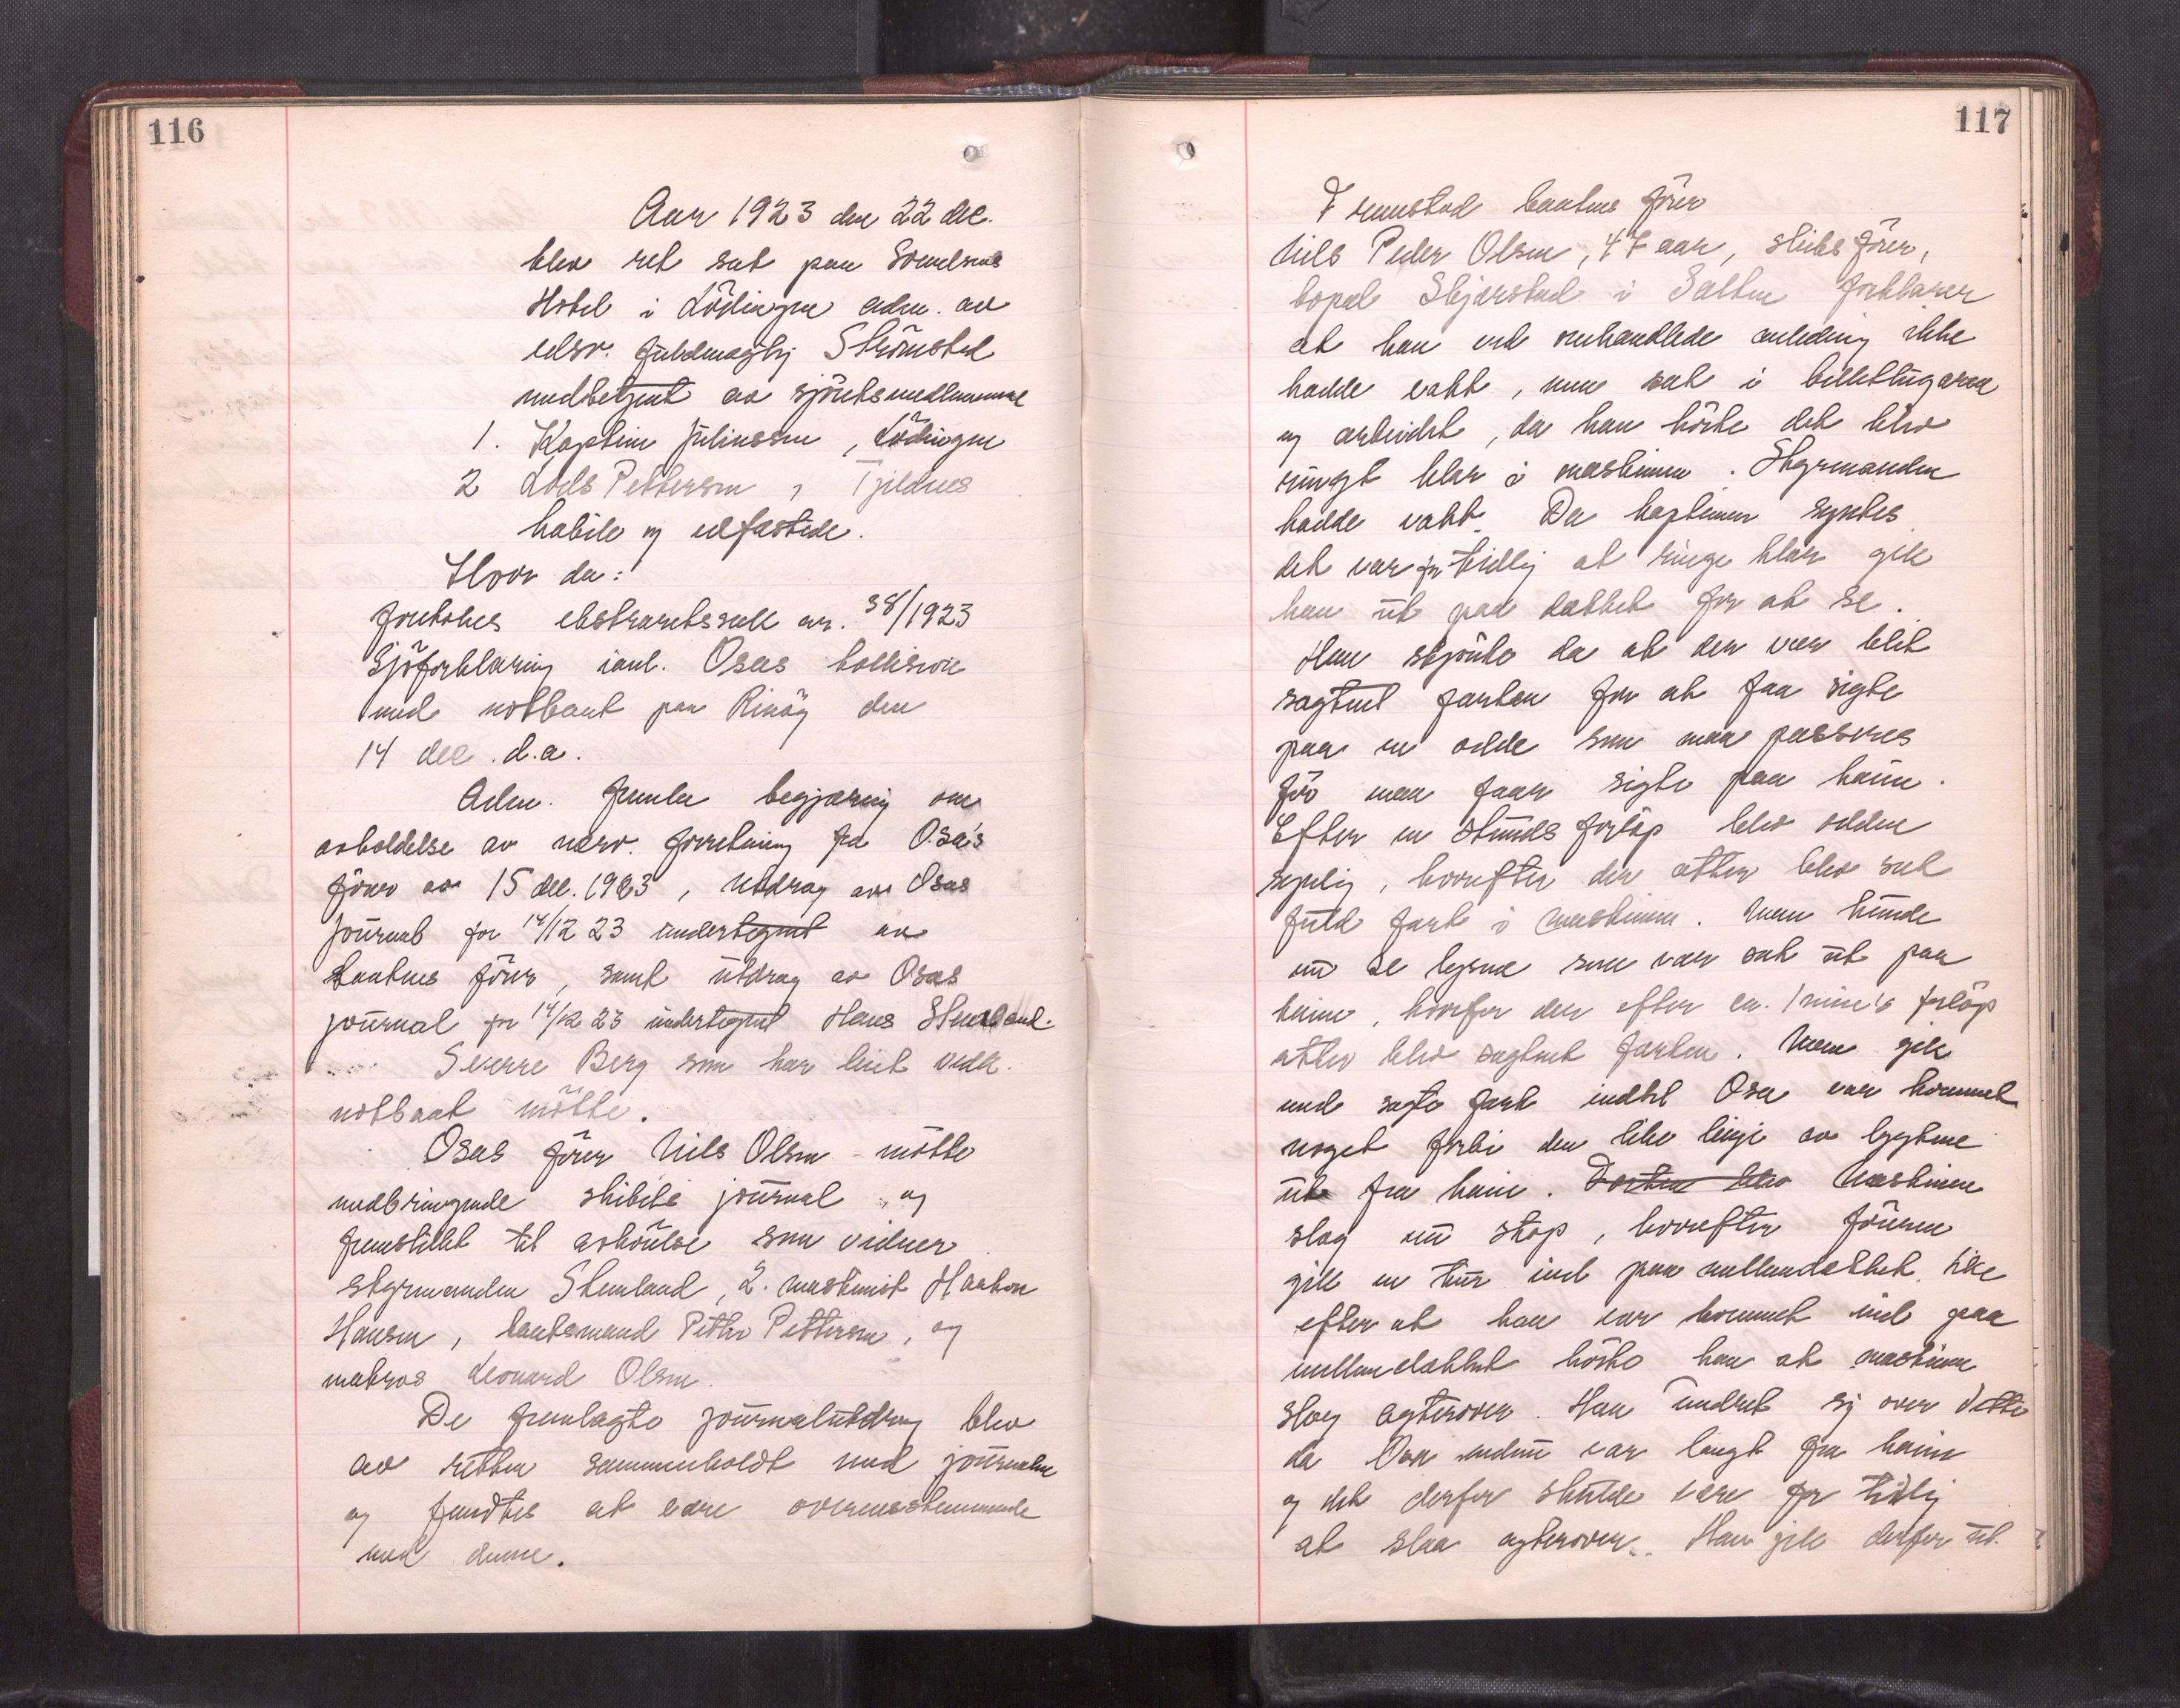 116
Aar 1923 den 22 dec.
blev ret sat paa
Hotel i Lödingen adm. av
edsv. fuldmægtig Strömsted
medbetjent av sjöretsmedlemmene
1. Kaptein Juliussen, Lödingen
2 Lods Pettersen, Tjeldnes
habile og edfæstede.
Hvor da:
foretokes ekstraretssak nr. 38/1923
Sjöforklaring i anl. Osas kollision
med notbaat paa Rinöy den
14 dec. d.a.
Adm. fremla begjæring om
avholdelse av nærv. forretning fra Osa's
förer av 15 dec. 1923, utdrag av Osas
journal for 14/12 23 undertegnet av
baatens förer, samt utdrag av Osas
journal for 14/12 23 undertegnet Hans Stenland.
Sverre Berg som har leiet vedk.
notbaat mötte.
Osas förer Nils Olsen mötte
medbringende skibets journal og
fremstillet til avhörelse som vidner
styrmanden Stenland, 2. maskinist Haakon
Hansen, baatsmand Petter Pettersen, og
matros Leonard Olsen.
De fremlagte journalutdrag blev
av retten sammenholdt med journalen
og fandtes at være overensstemmende
med denne.
117
Fremstod baatens förer
Nils Peder Olsen, 47 aar, skibsförer,
bopæl Skjerstad i Salten forklarer
at han ved omhandlede anledning ikke
hadde vakt, men sat i billetlugaren
og arbeidet, da han hörte det blev
ringt klar i maskinen. Styrmanden
hadde vakt. Da kapteinen syntes
det var for tidlig at ringe klar gik
han ut paa dækket for at se.
Han skjönte da at der var blit
sagtnet farten for at faa sigte
paa en odde som maa passeres
för man faar sigte paa kaien.
Efter en stunds forlöp blev odden
synlig, hvorefter der atter blev sat
fuld fart i maskinen. Man kunde
nu se lysene som var sat ut paa
kaien, hvorfor der efter en. 1 min's forlöp
atter blev sagtnet farten. Man gik
med sagte fart indtil Osa var kommet
noget forbi den like linje av lygtene
ut fra kaien. Farten blev Maskinen
slog nu stop, hvorefter föreren
gik en tur ind paa mellemdækket. Like
efter at han var kommet ind paa
mellemdækket hörte han at maskinen
slog agterover. Han undret sig over dette
da Osa endnu var langt fra kaien
og det derfor skulde være for tidlig
at slaa agterover. Han gik derfor ut